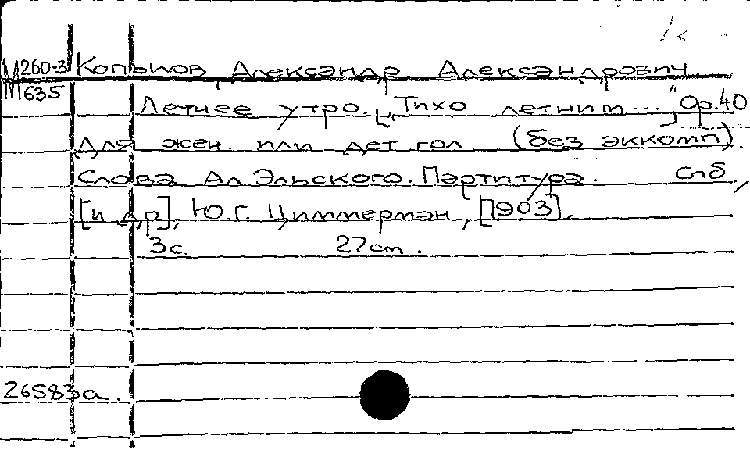 М260-3 Копылов, Александр Александрович
М635
Летнее утро. [„Тихо летним..."] Ор.40
для жен. или дет. гол. (без аккомп).
Слова Ал. Эльского. Партитура. Спб.,
[и др], Ю.Г. Циммерман, [1903].
3с. 27cm.
26583а.